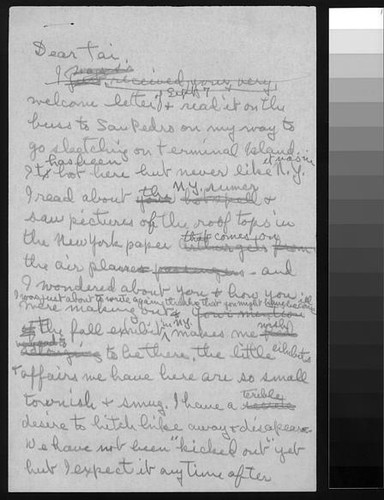 Dear Tai,
I just received your very
Sept 7
welcome letter, & read it on the
buss to San Pedro on my way to
go sketching on terminal Island.
has been it was in
Its hot here but never like N.Y.
N.Y. sumer
I read about the hot spell &
saw pictures of the roof tops in
that comes on
the New York paper
the air planes passengers - and
I wondered about you & how you
I was just about to write again, thinking that you might be ill
were making out.
in N.Y. wish
the fall exhibit makes me
to be there, the little exhibits
& affairs we have here are so small
terrible
townish & smug. I have a
desire to hitch hike away & disapear
We have not been "kicked out" yet
but I expect it any time after